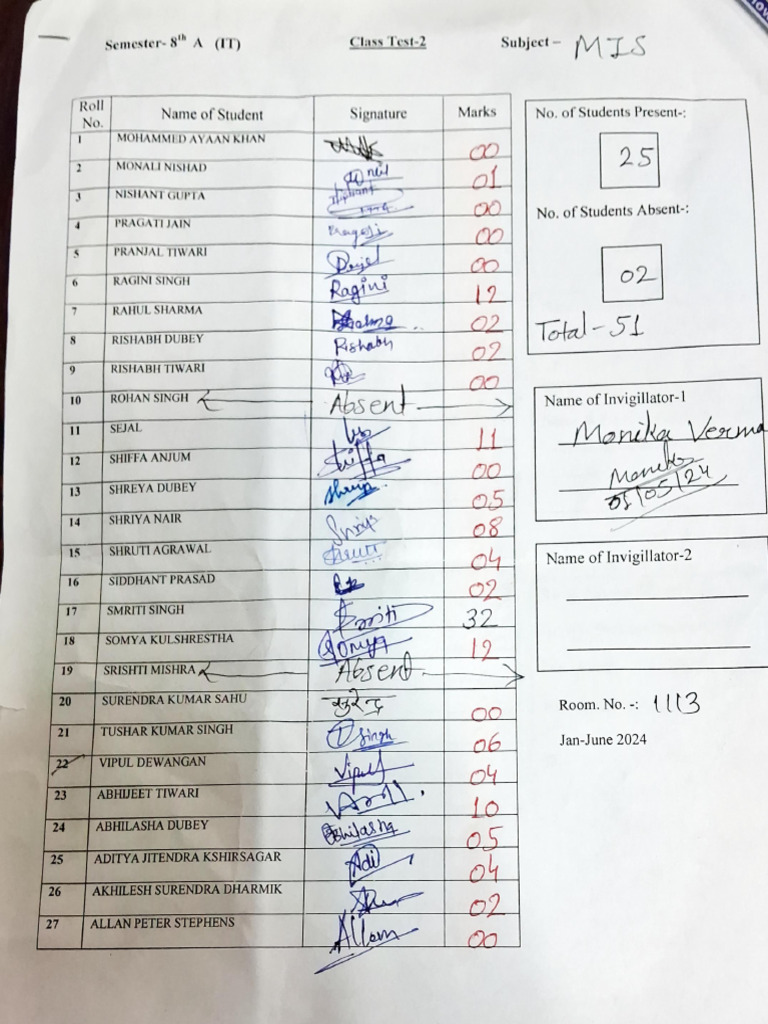 Semester- 8th A (IT) Class Test-2 Subject – MIS
Roll No. Name of Student Signature Marks
1 MOHAMMED AYAAN KHAN 00
2 MONALI NISHAD 01
3 NISHANT GUPTA 00
4 PRAGATI JAIN Pragati 00
5 PRANJAL TIWARI 00
6 RAGINI SINGH Ragini 12
7 RAHUL SHARMA 02
8 RISHABH DUBEY Rishabh 02
9 RISHABH TIWARI 00
10 ROHAN SINGH Absent
11 SEJAL 11
12 SHIFFA ANJUM Shiffa 00
13 SHREYA DUBEY 05
14 SHRIYA NAIR Shriya 08
15 SHRUTI AGRAWAL Shruti 04
16 SIDDHANT PRASAD 02
17 SMRITI SINGH Smriti 32
18 SOMYA KULSHRESTHA Somya 12
19 SRISHTI MISHRA Absent
20 SURENDRA KUMAR SAHU सुरेन्द्र 00
21 TUSHAR KUMAR SINGH TSingh 06
22 VIPUL DEWANGAN Vipul 04
23 ABHIJEET TIWARI 10
24 ABHILASHA DUBEY Abhilasha 05
25 ADITYA JITENDRA KSHIRSAGAR Adi 04
26 AKHILESH SURENDRA DHARMIK 02
27 ALLAN PETER STEPHENS Allan 00
No. of Students Present-:
25
No. of Students Absent-:
02
Total - 51
Name of Invigillator-1
Monika Verma
Monika
01/05/24
Name of Invigillator-2
Room. No. -: 1113
Jan-June 2024